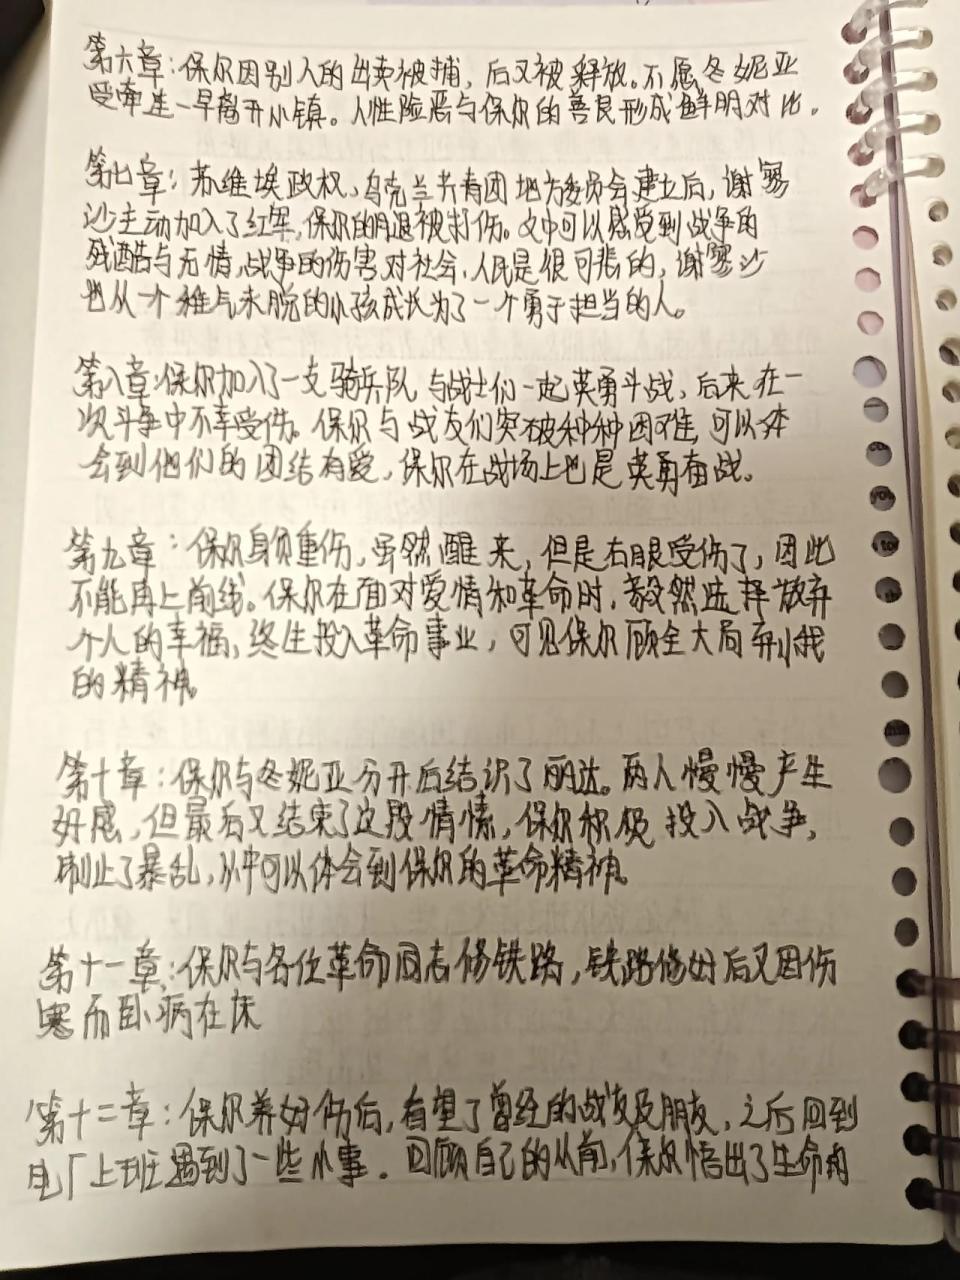 第六章：保尔因别人的出卖被捕，后又被释放。不愿冬妮亚
受牵连一早离开小镇。人性险恶与保尔的善良形成鲜明对比。
第七章：苏维埃政权、乌克兰共青团地方委员会建立后，谢寥
沙主动加入了红军，保尔的腿被打伤。文中可以感受到战争的
残酷与无情，战争的伤害对社会、人民是很可悲的，谢寥沙
也从一个稚气未脱的小孩成长为了一个勇于担当的人。
第八章：保尔加入了一支骑兵队，与战士们一起英勇斗战，后来在一
次斗争中不幸受伤。保尔与战友们突破种种困难，可以体
会到他们的团结有爱，保尔在战场上也是英勇奋战。
第九章：保尔身负重伤，虽然醒来，但是右眼受伤了，因此
不能再上前线。保尔在面对爱情和革命时，毅然选择放弃
个人的幸福，终生投入革命事业，可见保尔顾全大局弃小我
的精神。
第十章：保尔与冬妮亚分开后结识了丽达。两人慢慢产生
好感，但最后又结束了这段情愫，保尔积极投入战争，
制止了暴乱，从中可以体会到保尔的革命精神。
第十一章：保尔与各位革命同志修铁路，铁路修好后又因伤
寒而卧病在床
第十二章：保尔养好伤后，看望了曾经的战友及朋友，之后回到
电厂上班遇到了一些小事。回顾自己的从前，保尔悟出了生命的